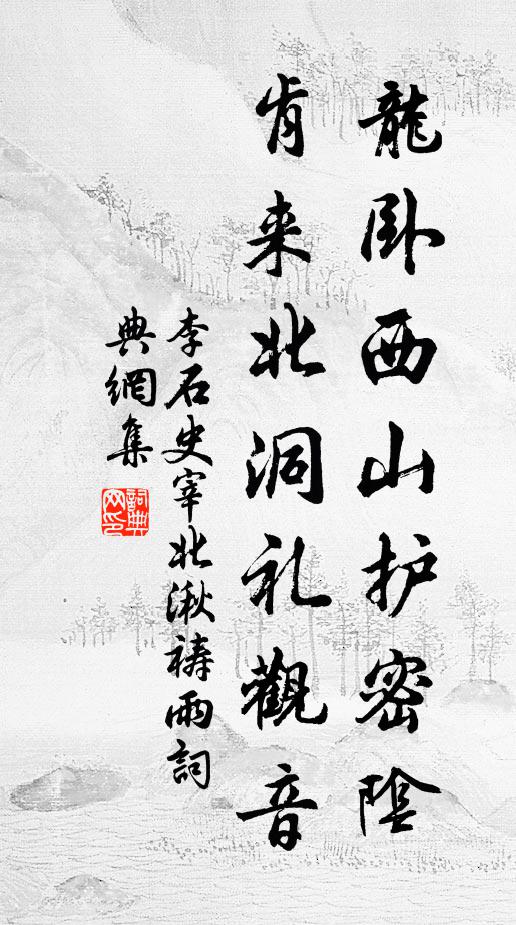 龍卧西山护密陰
肯来北洞礼觀音
李石史宰北湫祷雨詞
典網集
詞典网印